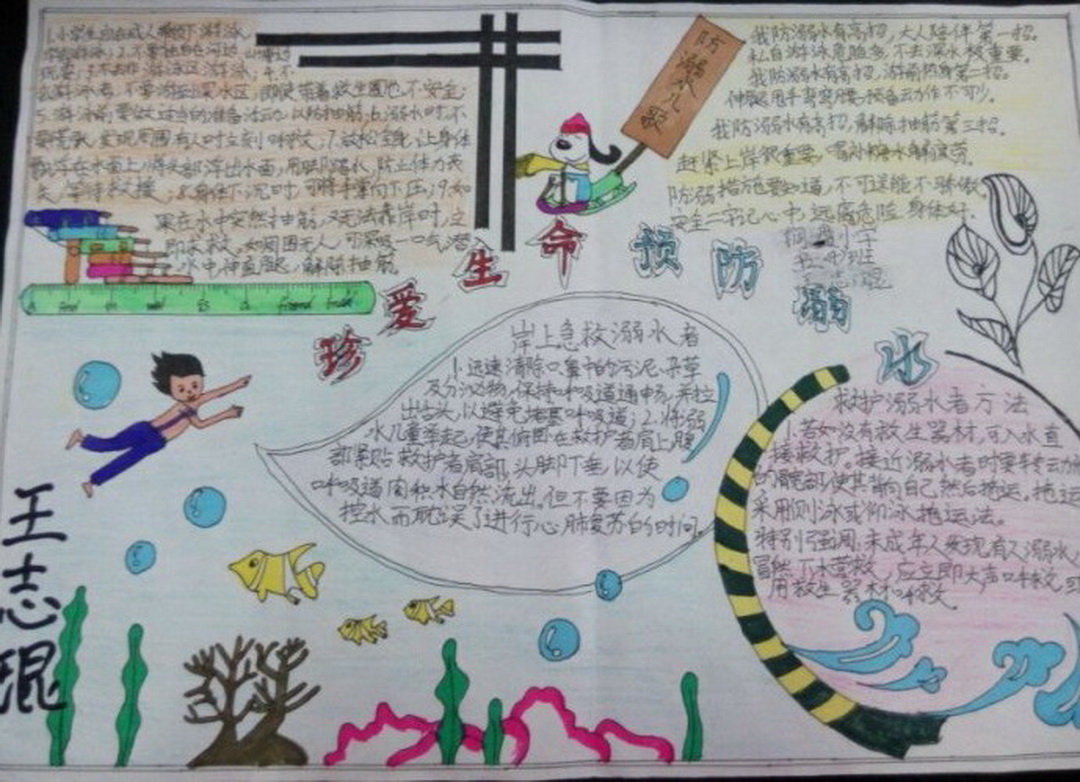 1.小学生应在成人
玩耍;3.不去非游泳区游泳;4.不
会游泳者,不要游到深水区,即使带着救生圈也不安全;
5.游泳前要做适当的准备活动,以防抽筋;6.溺水时不
要慌张,发现周围有人时立刻呼救;7.放松全身,让身体
飘浮在水面上,将头部浮出水面,用脚踢水,防止体力丧
失,等待救援;8.身体下沉时,可将手掌向下压;9.如
果在水中突然抽筋,又无法靠岸时,立
即求救,如周围无人,可深吸一口气潜
水中,伸直腿,解除抽筋
防溺水儿歌
我防溺水有高招,大人陪伴第一招.
私自游泳危险多,不去深水极重要.
我防溺水有高招,游前热身第二招.
伸腿甩手弯弯腰,预备动作不可少.
我防溺水有高招,解除抽筋第三招.
赶紧上岸很重要,喝补糖水解疲劳.
防溺措施要知道,不可逞能不骄傲
安全二字记心中,远离危险身体好.
珍爱生命预防溺水
岸上急救溺水者
1.迅速清除口鼻中的污泥、杂草
及分泌物,保持呼吸道通畅,并拉
出舌头,以避免堵塞呼吸道;2.将溺
水儿童举起,使其俯面在救护者肩上,腹
部紧贴救护者肩部,头脚下垂,以使
呼吸道内积水自然流出。但不要因为
控水而耽误了进行心肺复苏的时间。
救护溺水者方法
1.若如没有救生器材,可入水直
接救护。接近溺水者时要转动他
的髋部,使其背向自己然后拖运。拖运
采用侧泳或仰泳拖运法。
特别强调:未成年人发现有人溺水,
冒然下水营救,应立即大声呼救,或
用救生器材呼救。
王志琨